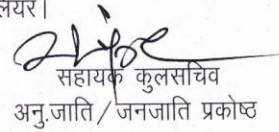 लयर।
सहायक कुलसचिव
अनु.जाति / जनजाति प्रकोष्ठ